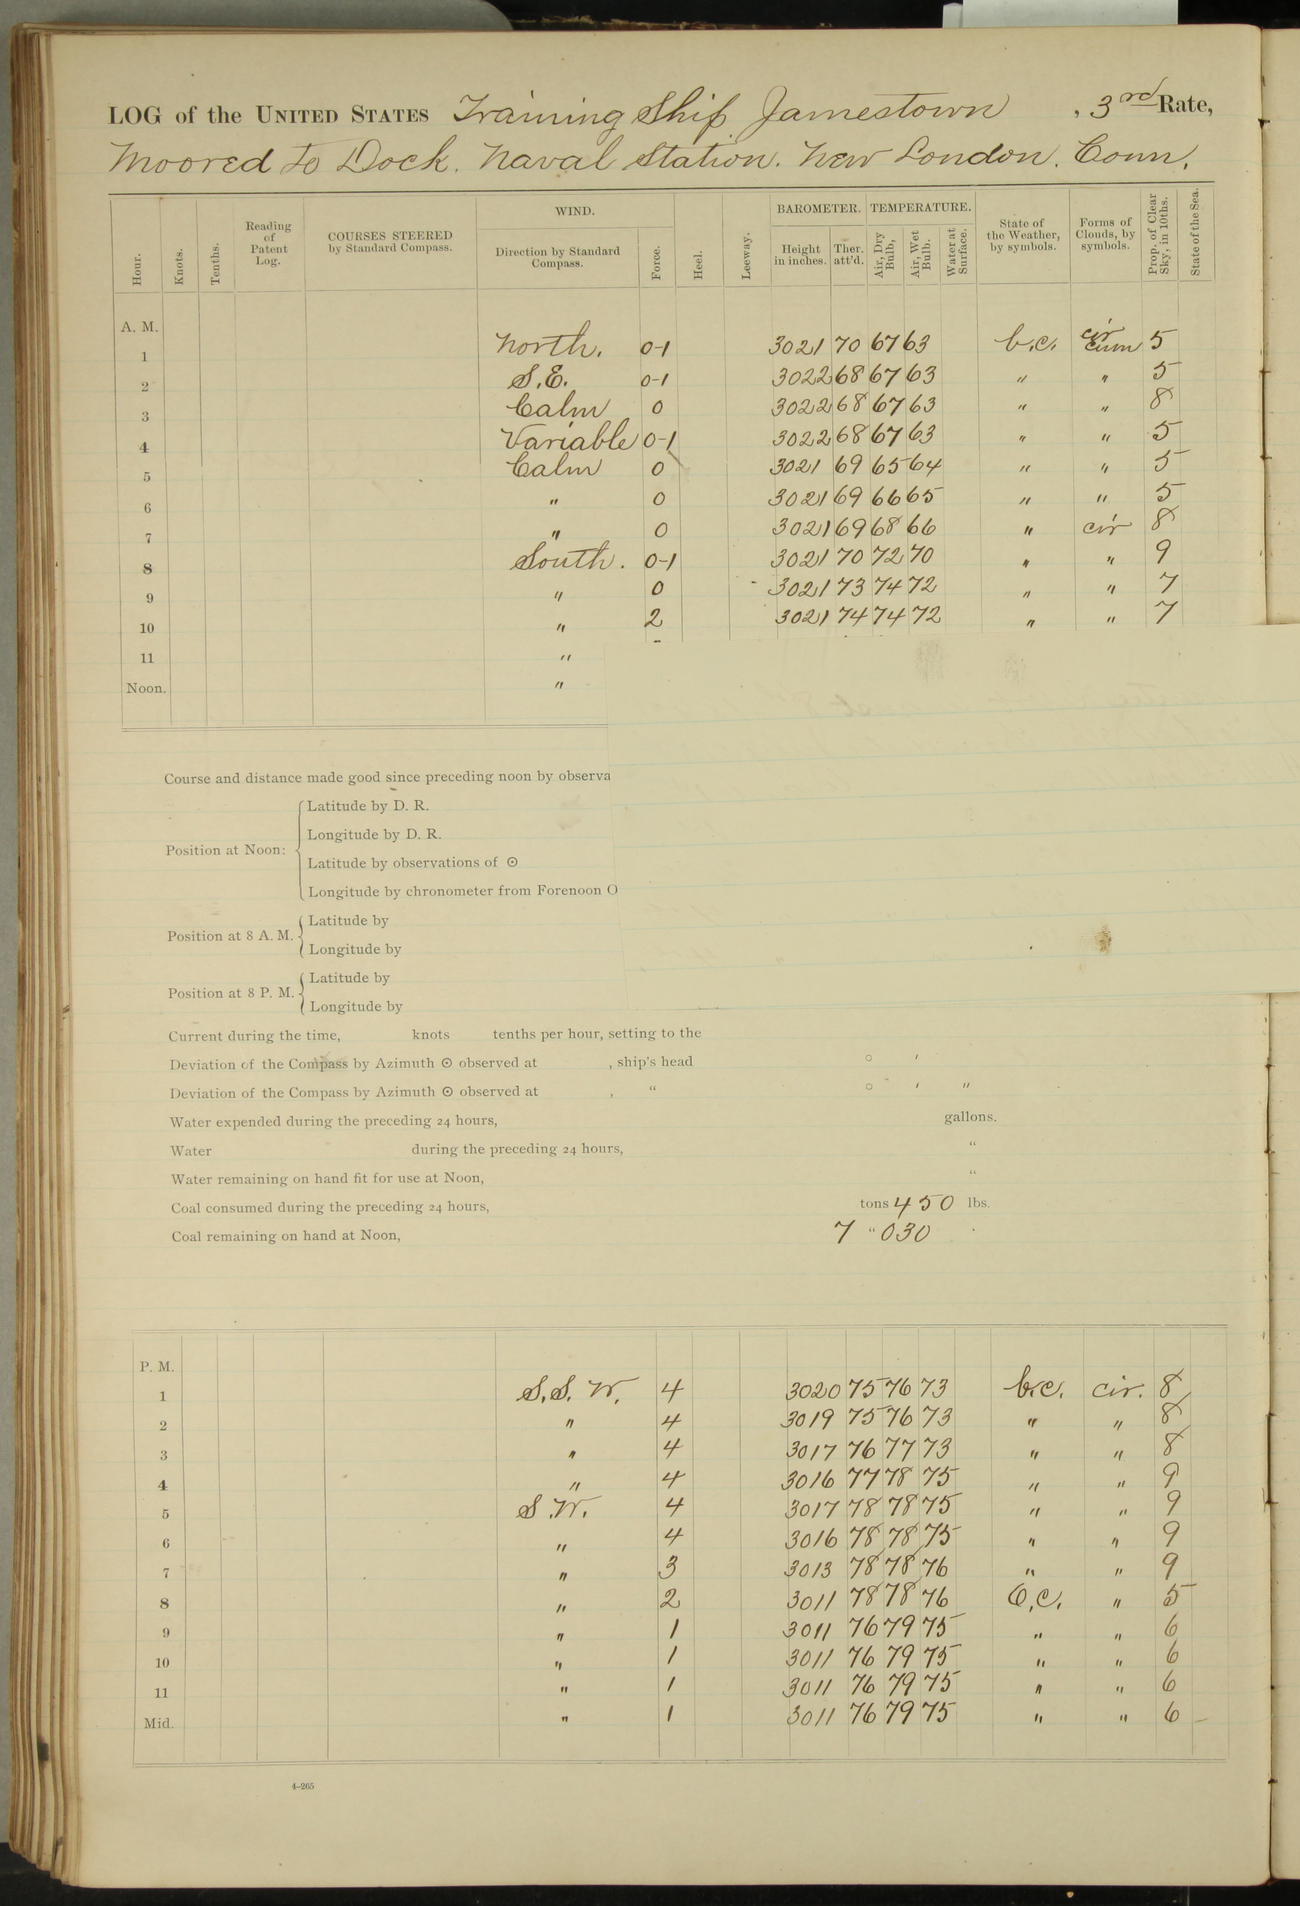 LOG of the UNITED STATES Training Ship Jamestown , 3rd Rate,
Moored to Dock. Naval Station. New London. Conn.
Hour. Knots. Tenths. Reading of Patent Log. COURSES STEERED by Standard Compass. WIND. Direction by Standard Compass. Force. Heel. Leeway. BAROMETER. Height in inches. Ther. att'd. TEMPERATURE. Air, Dry Bulb. Air, Wet Bulb. Water at Surface. State of the Weather, by symbols. Forms of Clouds, by symbols. Prop. of Clear Sky, in 10ths. State of the Sea.
A. M.
1 North. 0-1 3021 70 67 63 b.c. cir cum 5
2 S.E. 0-1 3022 68 67 63 " " 5
3 Calm 0 3022 68 67 63 " " 8
4 Variable 0-1 3022 68 67 63 " " 5
5 Calm 0 3021 69 65 64 " " 5
6 " 0 3021 69 66 65 " " 5
7 " 0 3021 69 68 66 " cir 8
8 South. 0-1 3021 70 72 70 " " 9
9 " 0 3021 73 74 72 " " 7
10 " 2 3021 74 74 72 " " 7
11 "
Noon. "
Course and distance made good since preceding noon by observa
Position at Noon:
Latitude by D. R.
Longitude by D. R.
Latitude by observations of ⊙
Longitude by chronometer from Forenoon O
Position at 8 A. M.
Latitude by
Longitude by
Position at 8 P. M.
Latitude by
Longitude by
Current during the time, knots tenths per hour, setting to the
Deviation of the Compass by Azimuth ⊙ observed at , ship's head ° ′
Deviation of the Compass by Azimuth ⊙ observed at , " ° ′ ″
Water expended during the preceding 24 hours, gallons.
Water during the preceding 24 hours, "
Water remaining on hand fit for use at Noon, "
Coal consumed during the preceding 24 hours, tons 450 lbs.
Coal remaining on hand at Noon, 7 " 030
P. M.
1 S.S.W. 4 3020 75 76 73 b.c. cir. 8
2 " 4 3019 75 76 73 " " 8
3 " 4 3017 76 77 73 " " 8
4 " 4 3016 77 78 75 " " 9
5 S.W. 4 3017 78 78 75 " " 9
6 " 4 3016 78 78 75 " " 9
7 " 3 3013 78 78 76 " " 9
8 " 2 3011 78 78 76 O.C. " 5
9 " 1 3011 76 79 75 " " 6
10 " 1 3011 76 79 75 " " 6
11 " 1 3011 76 79 75 " " 6
Mid. " 1 3011 76 79 75 " " 6
4-265